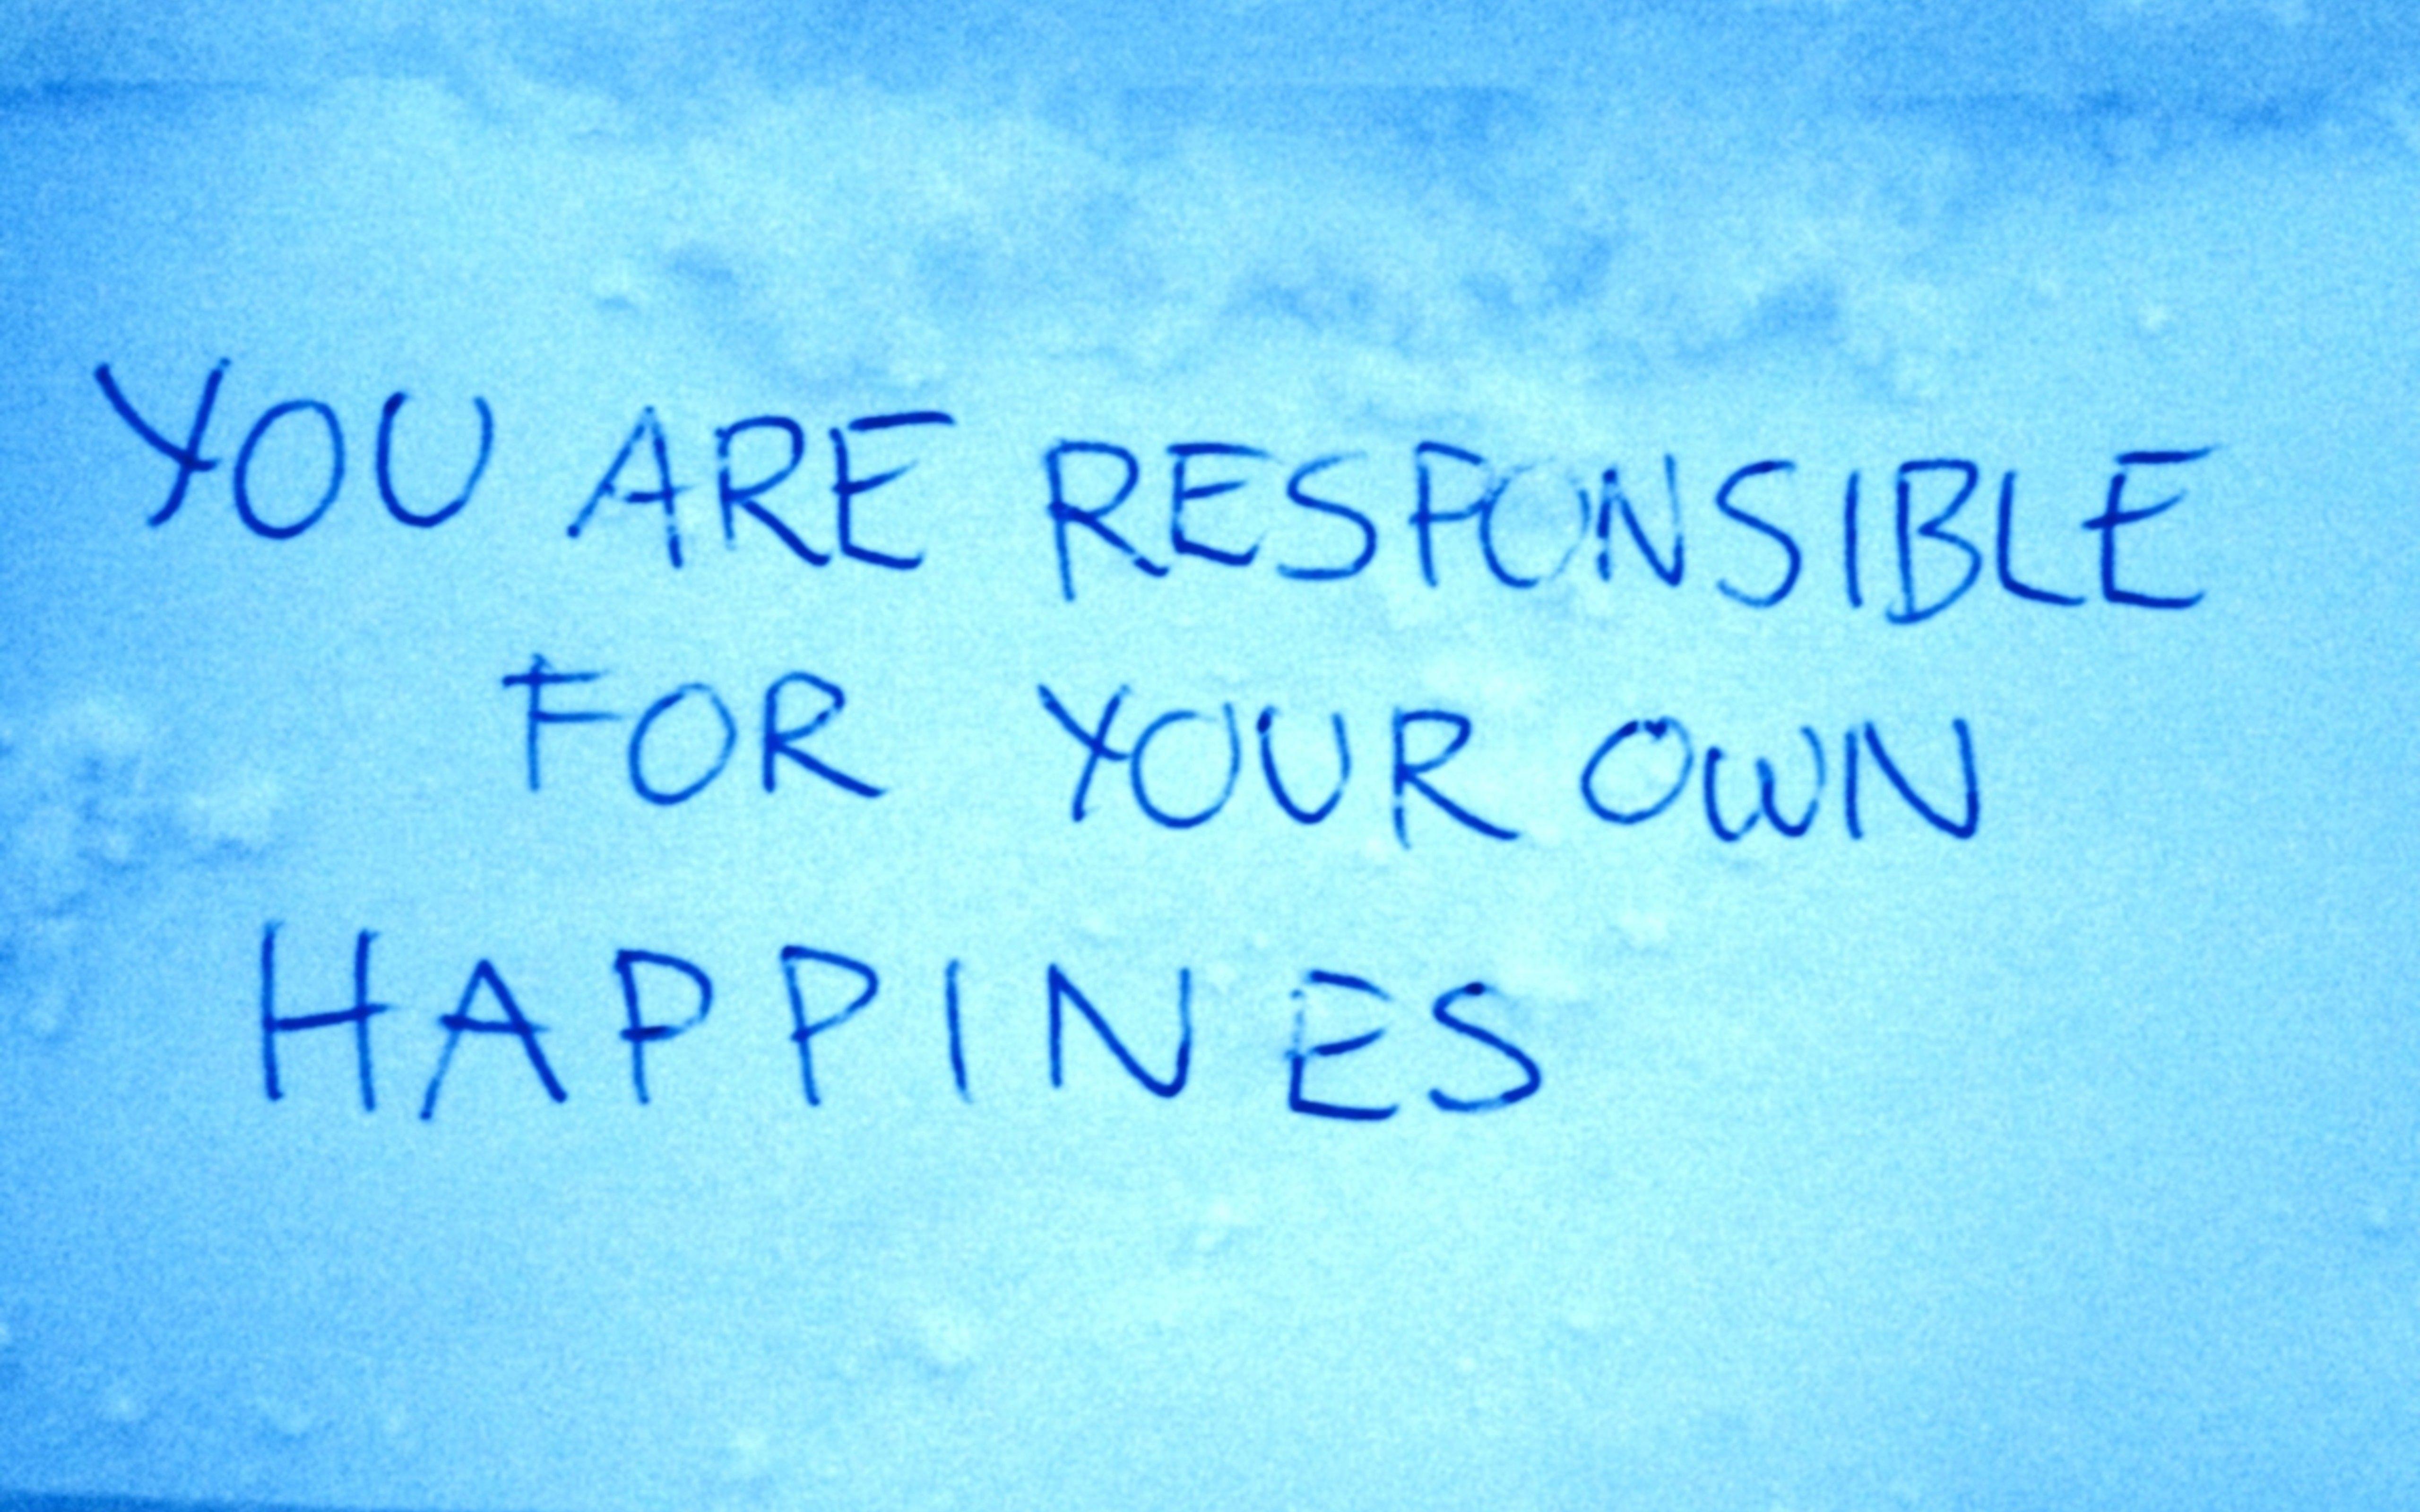 YOU ARE RESPONSIBLE
FOR YOUR OWN
HAPPINES